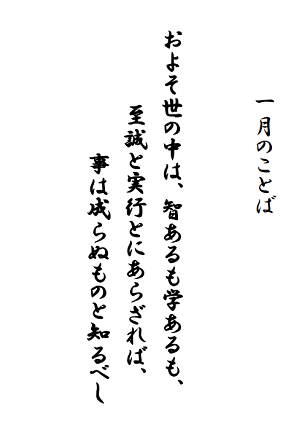 一月のことば
およそ世の中は、智あるも学あるも、
至誠と実行とにあらざれば、
事は成らぬものと知るべし